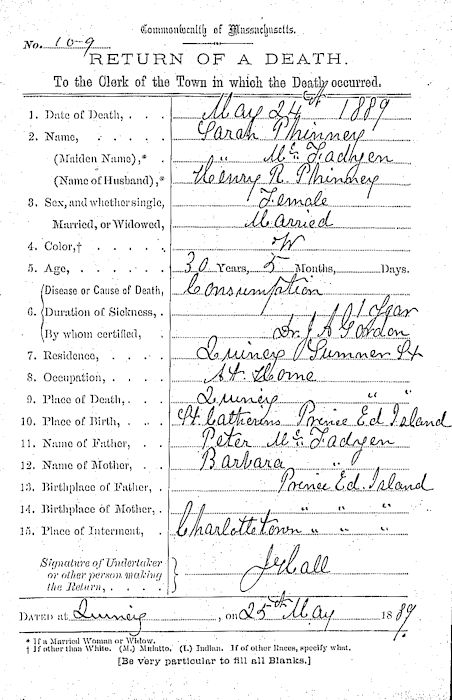 Commonwealth of Massachusetts.
No. 10-9
RETURN OF A DEATH.
To the Clerk of the Town in which the Death occurred.
1. Date of Death, . . . May 24th 1889
2. Name, . . . . . Sarah Phinney
(Maiden Name),* . . . " McFadyen
(Name of Husband),* . Henry R. Phinney
3. Sex, and whether single, Female
Married, or Widowed, Married
4. Color,† . . . . . W
5. Age, . . . . . 30 Years, 5 Months, Days.
6. {Disease or Cause of Death, Consumption
{Duration of Sickness, . 1 Year
{By whom certified, . Dr. J A Gordon
7. Residence, . . . . Quincy Sumner St
8. Occupation, . . . . At Home
9. Place of Death, . . . Quincy " "
10. Place of Birth, . . . St. Catherins Prince Ed Island
11. Name of Father, . . Peter McFadyen
12. Name of Mother, . . Barbara "
13. Birthplace of Father, . Prince Ed. Island
14. Birthplace of Mother, . " " "
15. Place of Interment, . Charlottetown " " "
Signature of Undertaker
or other person making
the Return, . . . . } Hall
DATED at Quincy, on 25th May 1889.
* If a Married Woman or Widow.
† If other than White. (M.) Mulatto. (I.) Indian. If of other Races, specify what.
[Be very particular to fill all Blanks.]